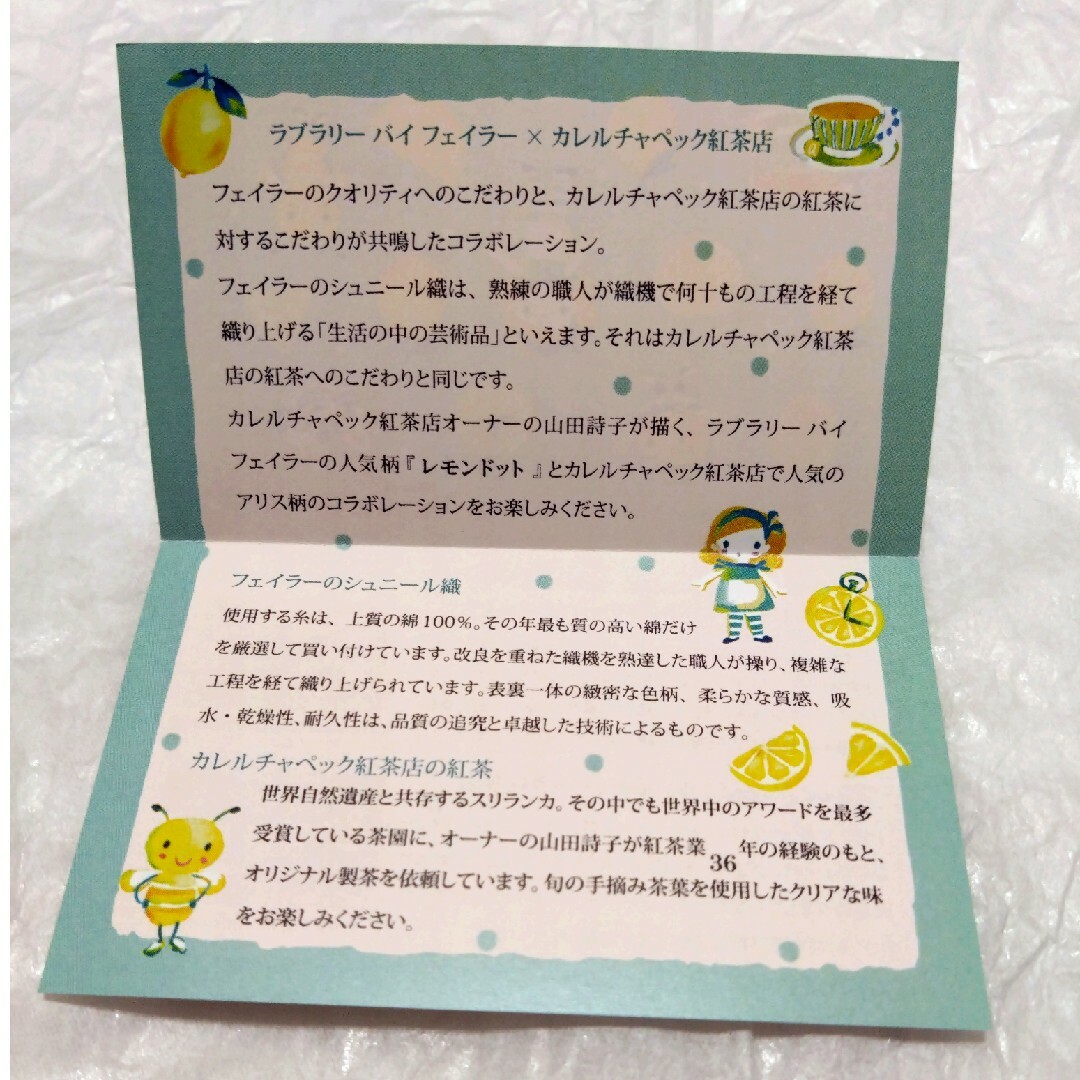 ラブラリー バイ フェイラー × カレルチャペック紅茶店
フェイラーのクオリティへのこだわりと、カレルチャペック紅茶店の紅茶に
対するこだわりが共鳴したコラボレーション。
フェイラーのシュニール織は、熟練の職人が織機で何十もの工程を経て
織り上げる「生活の中の芸術品」といえます。それはカレルチャペック紅茶
店の紅茶へのこだわりと同じです。
カレルチャペック紅茶店オーナーの山田詩子が描く、ラブラリー バイ
フェイラーの人気柄『 レモンドット 』とカレルチャペック紅茶店で人気の
アリス柄のコラボレーションをお楽しみください。
フェイラーのシュニール織
使用する糸は、上質の綿100%。その年最も質の高い綿だけ
を厳選して買い付けています。改良を重ねた織機を熟達した職人が操り、複雑な
工程を経て織り上げられています。表裏一体の緻密な色柄、柔らかな質感、吸
水・乾燥性、耐久性は、品質の追究と卓越した技術によるものです。
カレルチャペック紅茶店の紅茶
世界自然遺産と共存するスリランカ。その中でも世界中のアワードを最多
受賞している茶園に、オーナーの山田詩子が紅茶業36年の経験のもと、
オリジナル製茶を依頼しています。旬の手摘み茶葉を使用したクリアな味
をお楽しみください。